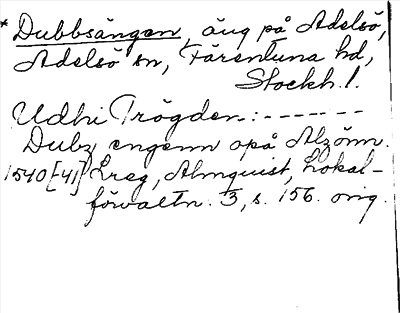 * Dubbsängen, äng på Adelsö,
Adelsö sn, Färentuna hd,
Stockh. l.
Udhi Trögden: - - - - - - -
Dubz engenn opå Alzönn.
1540 [-41] Lreg, Almquist, Lokal-
förvaltn. 3, s. 156. orig.